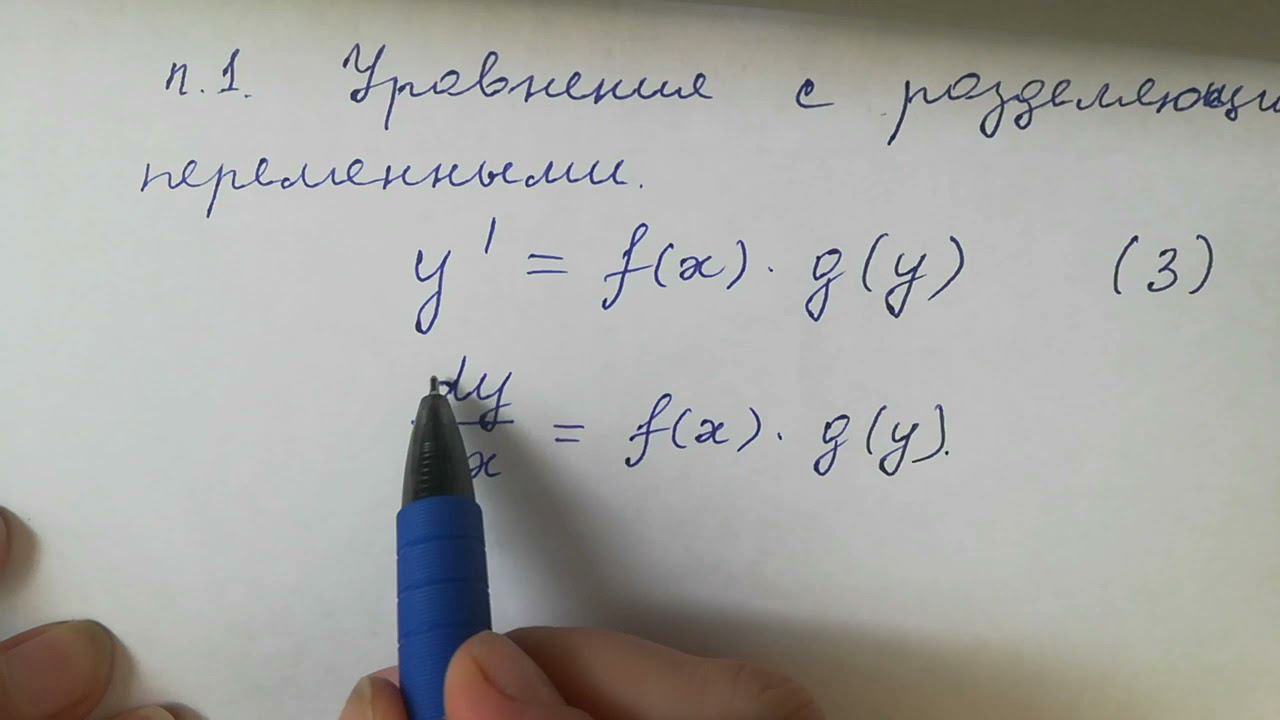 п.1. Уравнения с разделяющи
переменными.
y' = f(x) · g(y) (3)
dy
x = f(x) · g(y).